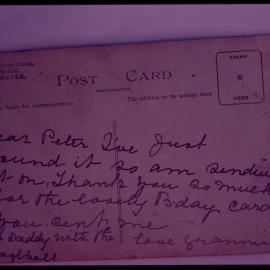 POST CARD
STAMP
HERE
The address to be written here
ear Peter I've Just
ound it so am sendin
it on. Thank you so much
for the lovely B.day card
you sent me
Daddy with the love Grannie